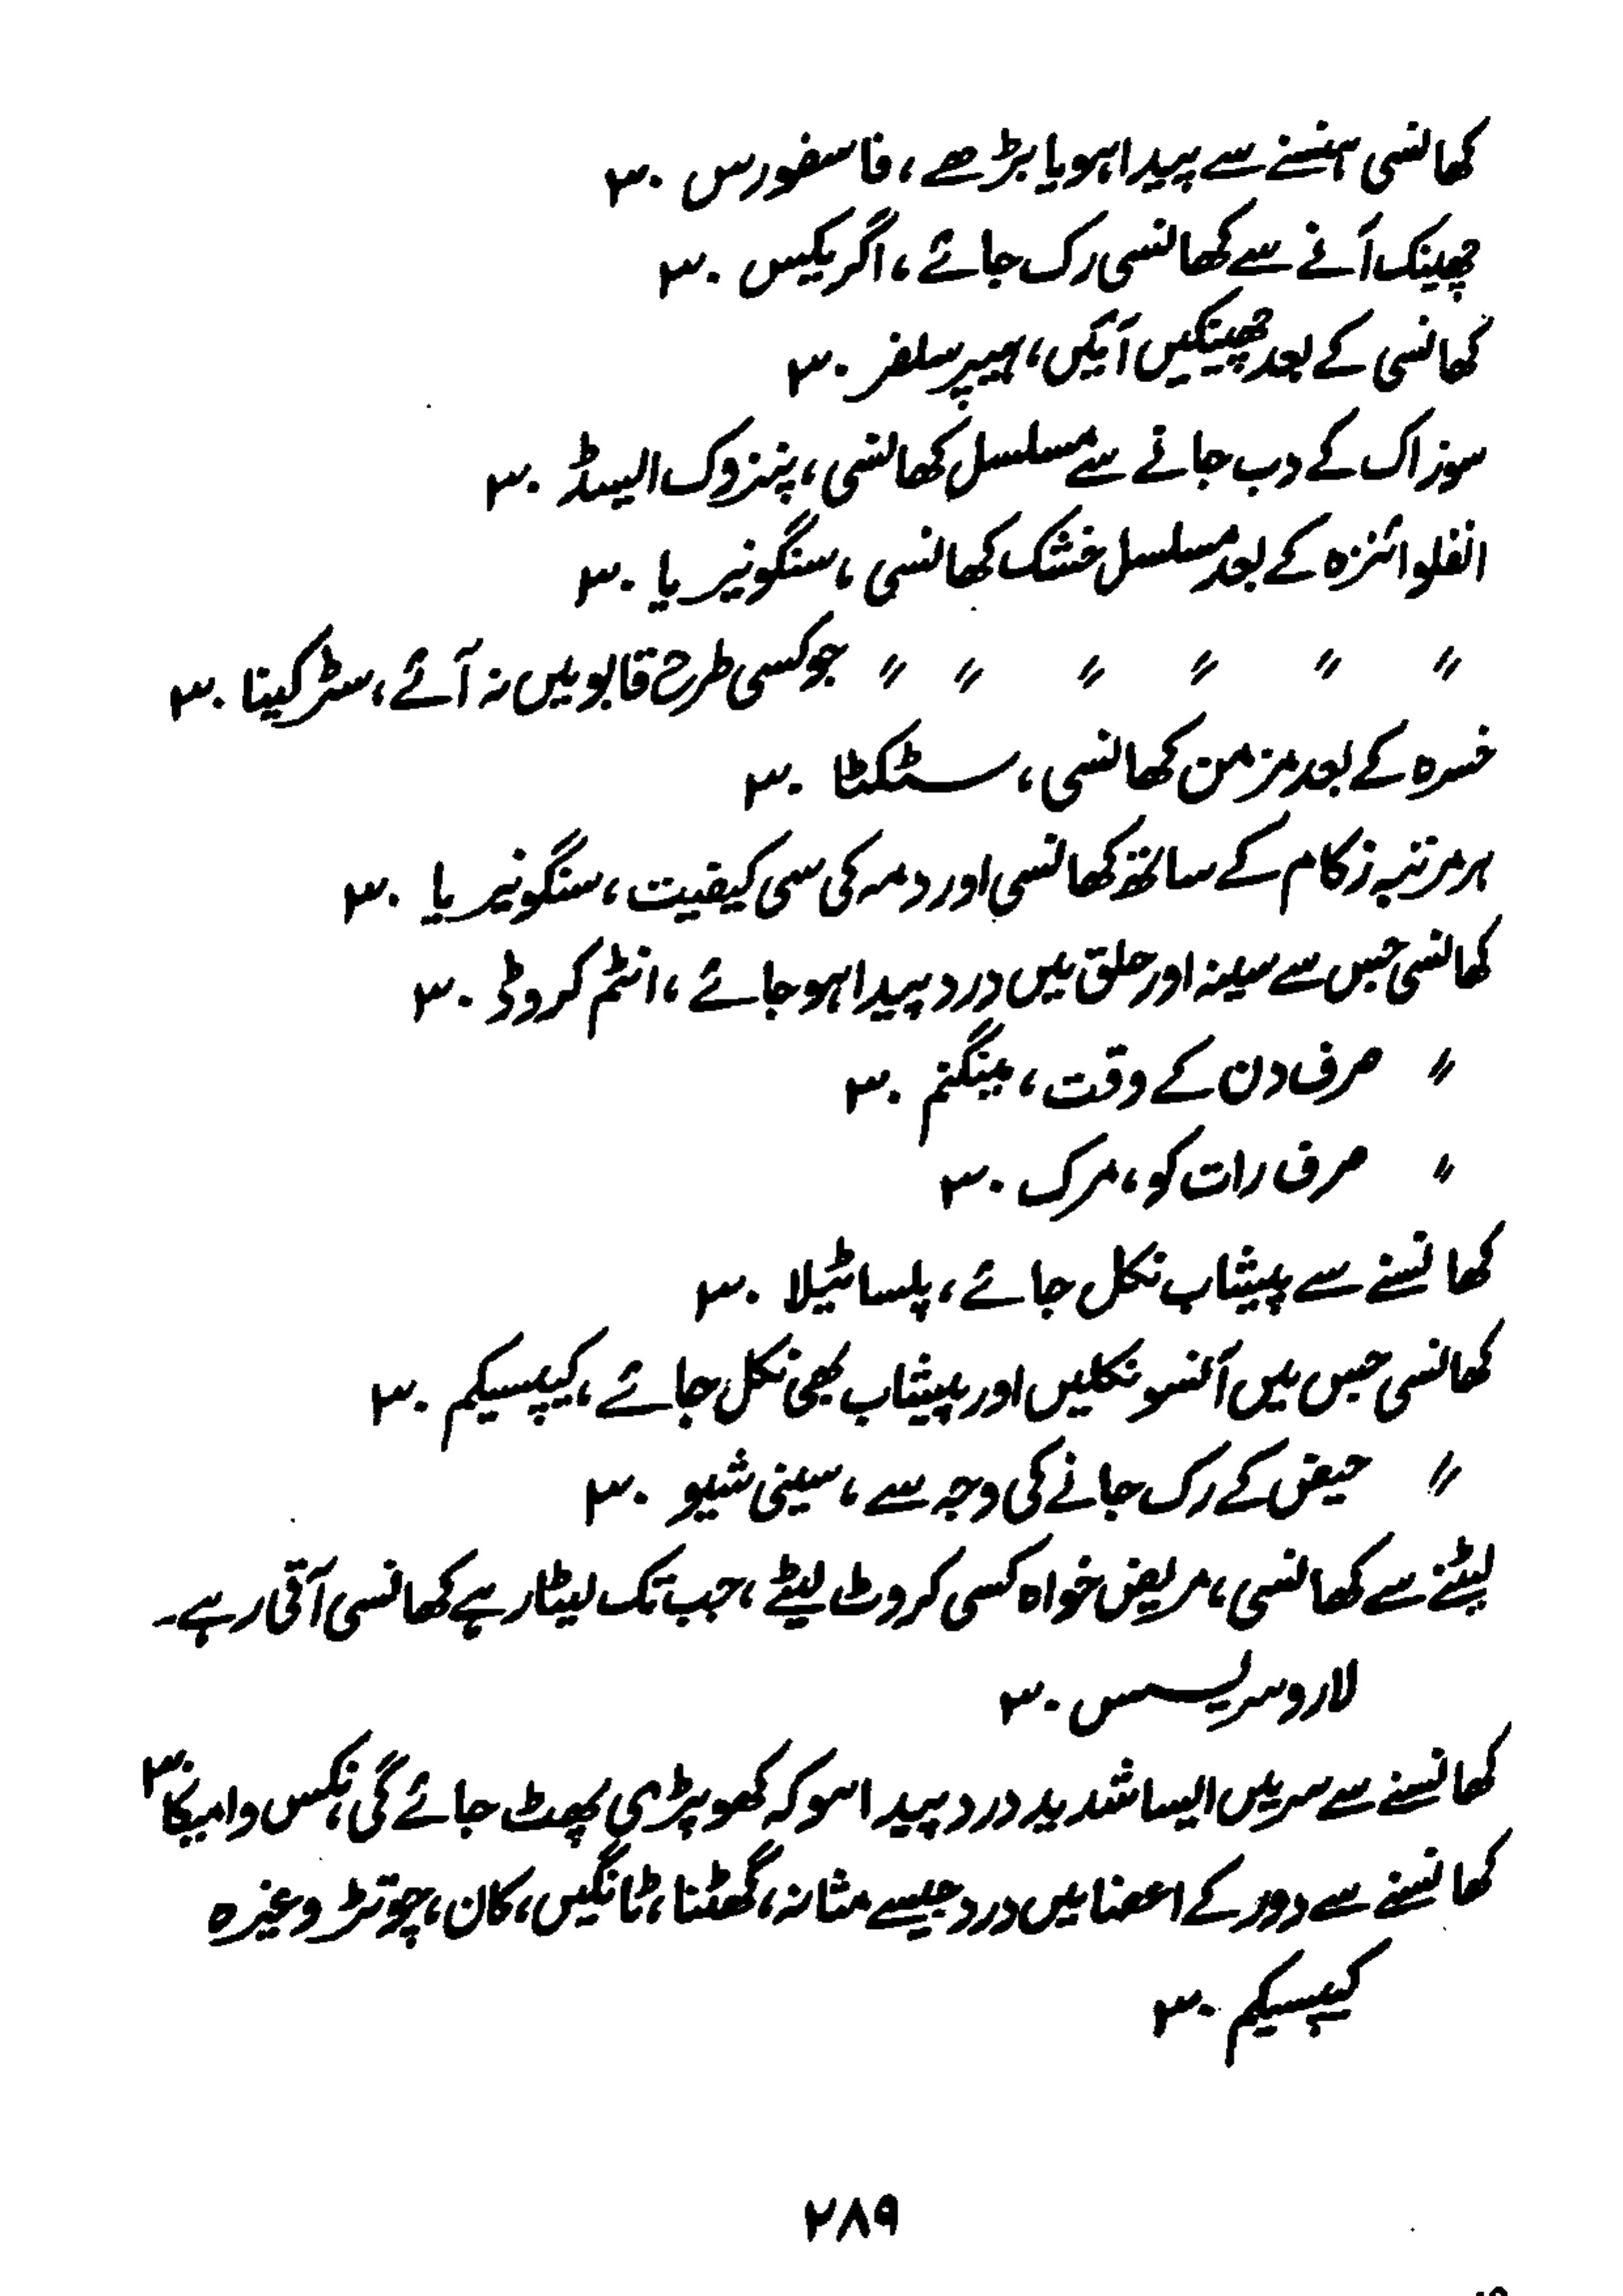 کھانسی ہنسنے سے پیدا ہو یا بڑھے، فاسفورس ۳۰
چھینک آنے سے کھانسی رک جائے، اگریکس ۳۰
کھانسی کے بعد چھینکیں آئیں، ہیپر سلفر ۳۰
سوزاک کے دب جانے سے مسلسل کھانسی، بنزوک ایسڈ ۳۰
انفلوائنزہ کے بعد مسلسل خشک کھانسی، سنگونیریا ۳۰
〃 〃 〃 〃 〃 〃 جو کسی طرح قابو میں نہ آئے، سٹرکینا ۳۰
خسرہ کے بعد مزمن کھانسی، سٹکٹا ۳۰
ہر مرتبہ زکام کے ساتھ کھانسی اور دمہ کی سی کیفیت، سنگونیریا ۳۰
کھانسی جس سے سینہ اور حلق میں درد پیدا ہو جائے، انٹم کروڈ ۳۰
〃 صرف دن کے وقت، مینگنم ۳۰
〃 صرف رات کو، مرک ۳۰
کھانسنے سے پیشاب نکل جائے، پلساٹیلا ۳۰
کھانسی جس میں آنسو نکلیں اور پیشاب بھی نکل جائے، کیپسیکم ۳۰
〃 حیض کے رک جانے کی وجہ سے، سینی شیو ۳۰
لیٹنے سے کھانسی، مریض خواہ کسی کروٹ لیٹے، جب تک لیٹا رہے کھانسی آتی رہے۔
لاروسریسس ۳۰
کھانسنے سے سر میں ایسا شدید درد پیدا ہو کہ کھوپڑی پھٹ جائے گی، نکس وامیکا ۳۰
کھانسنے سے دور کے اعضا میں درد جیسے مثانہ، گھٹنا، ٹانگیں، کان، چوتڑ وغیرہ
کیپسیکم ۳۰
۲۸۹